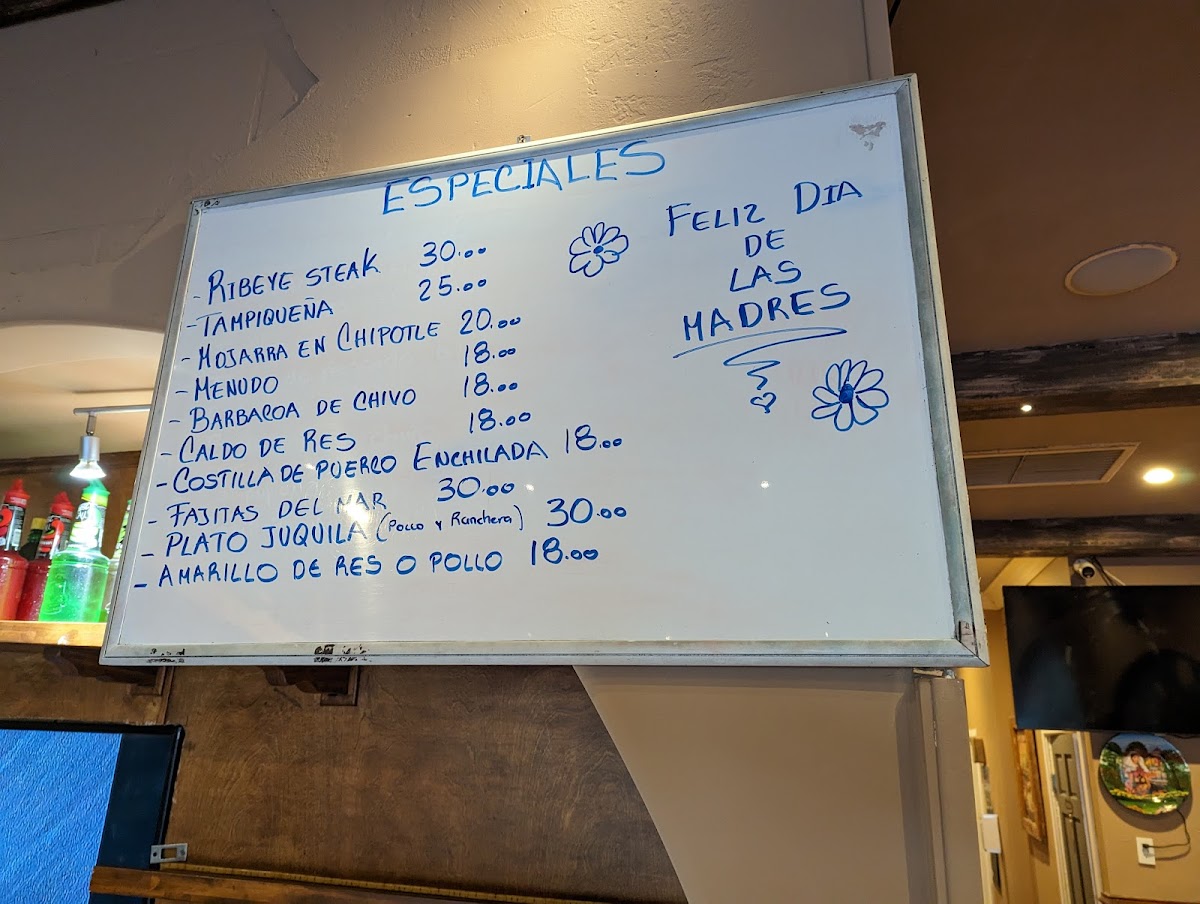 ESPECIALES
- RIBEYE STEAK 30.00
- TAMPIQUEÑA 25.00
- MOJARRA EN CHIPOTLE 20.00
- MENUDO 18.00
- BARBACOA DE CHIVO 18.00
- CALDO DE RES 18.00
- COSTILLA DE PUERCO ENCHILADA 18.00
- FAJITAS DEL MAR 30.00
- PLATO JUQUILA (Pollo y Ranchera) 30.00
- AMARILLO DE RES O POLLO 18.00
FELIZ DIA
DE
LAS
MADRES